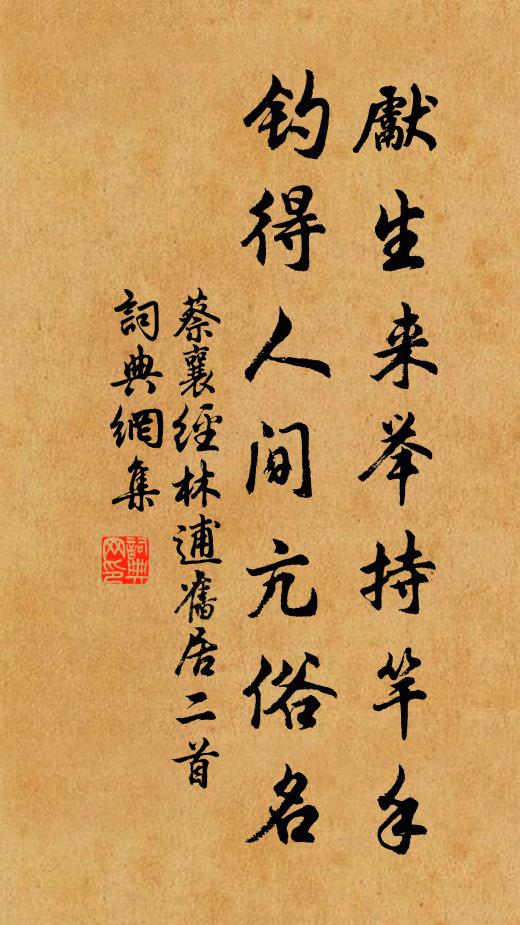 獻生来举持竿手
钓得人间亢俗名
蔡襄經林逋舊居二首
詞典網集
詞典网印